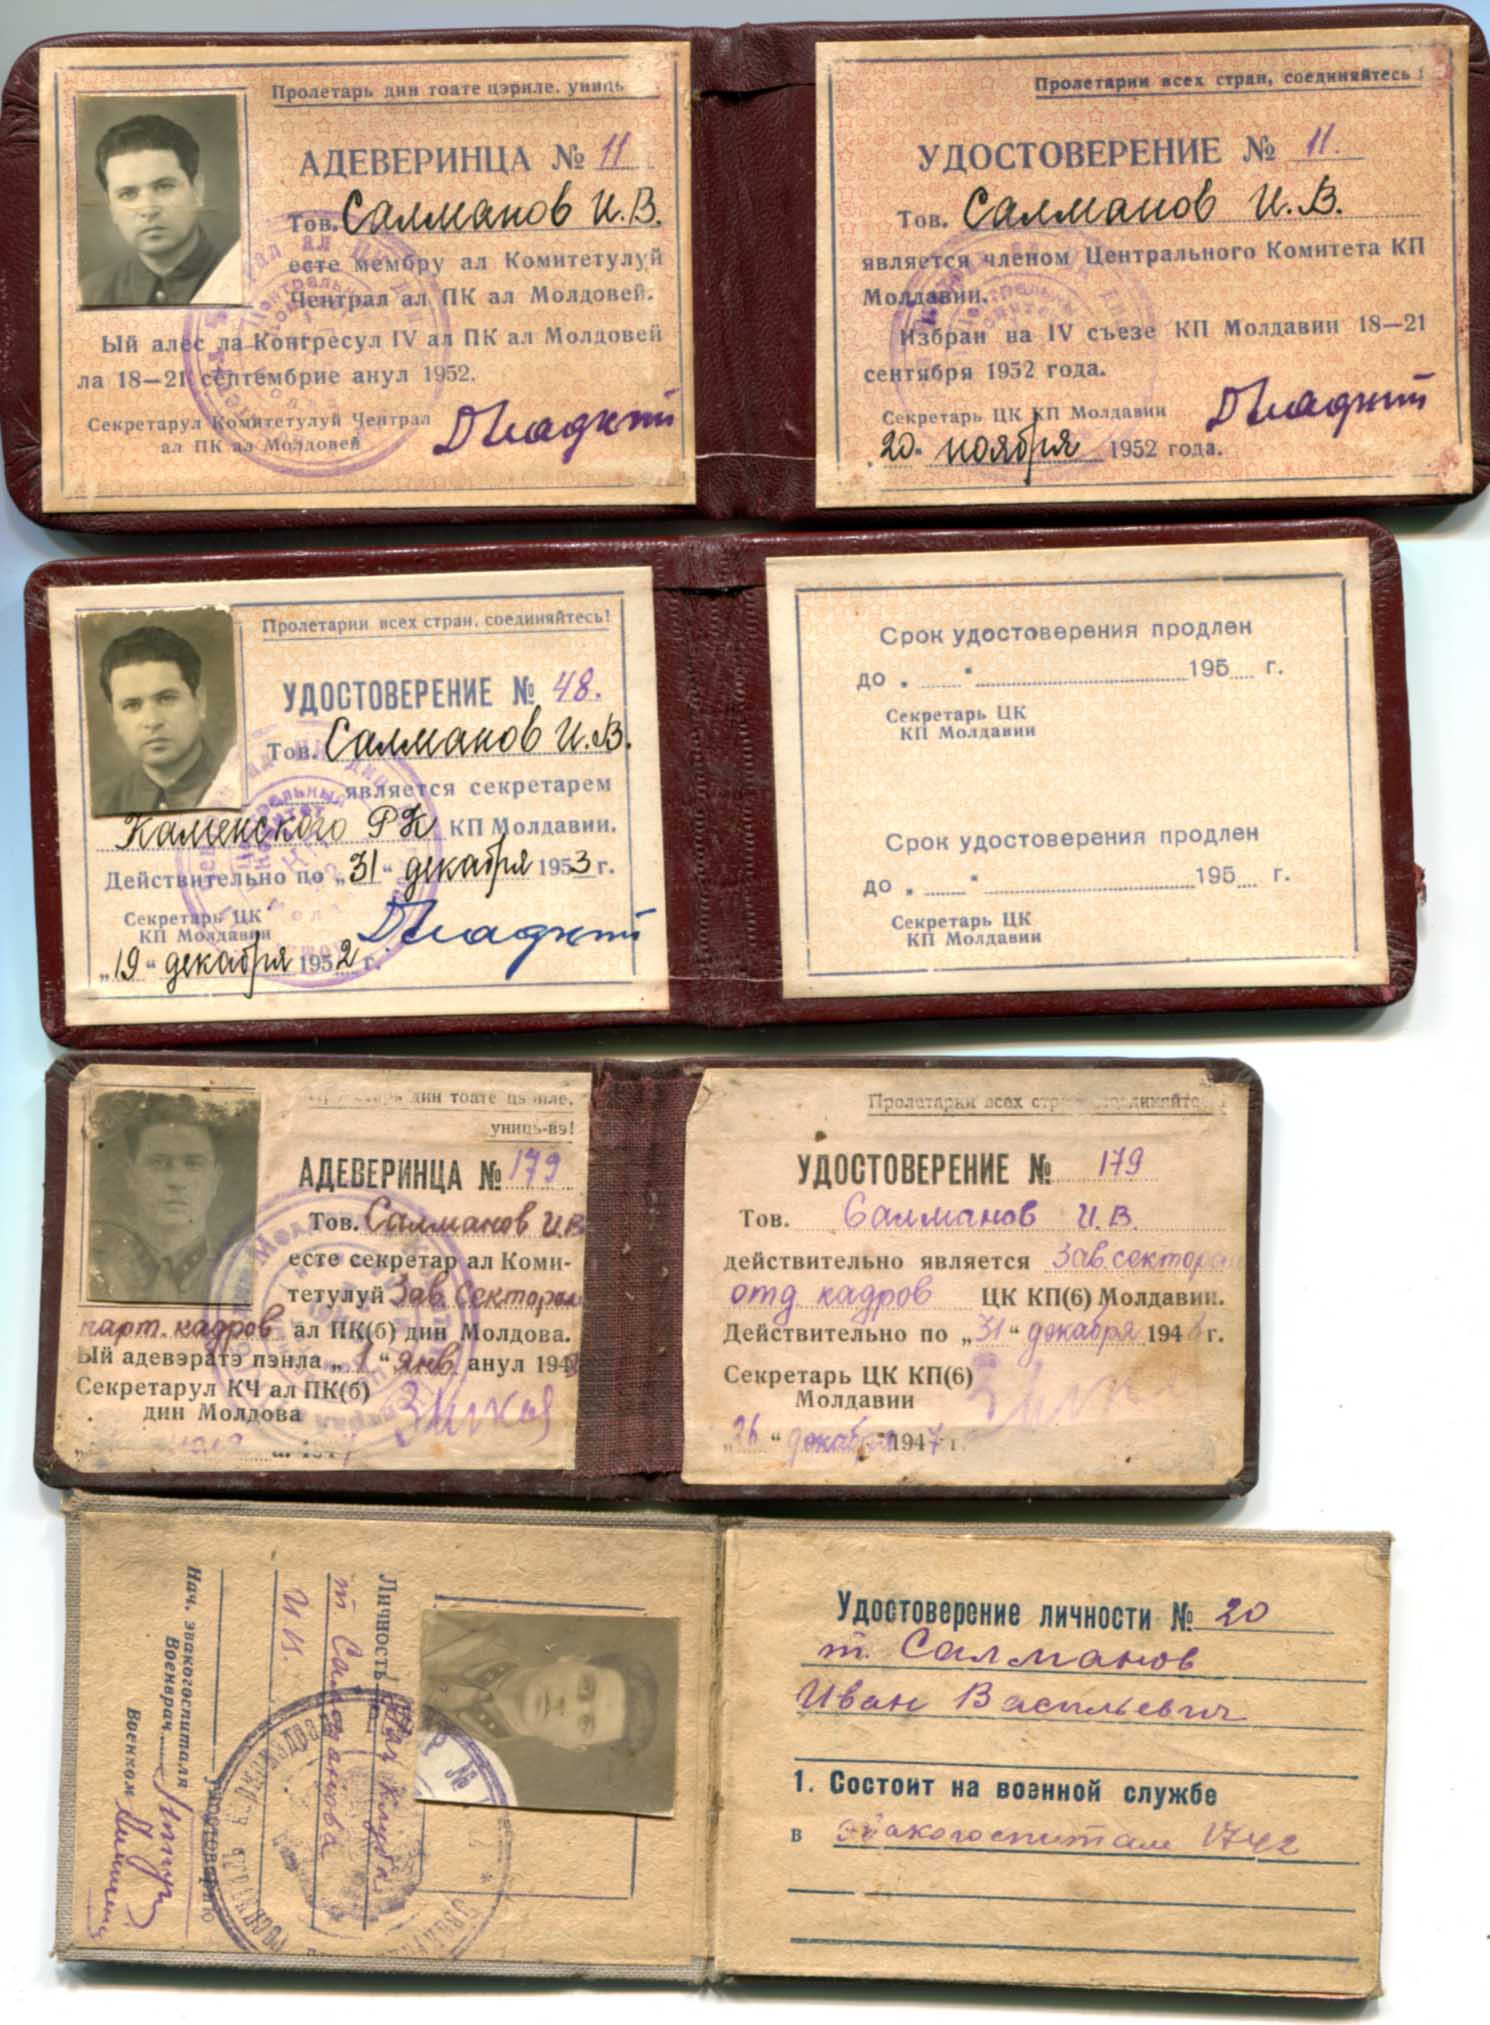 Пролетарь дин тоате цэриле, униць
АДЕВЕРИНЦА № 11
Тов. Салманов И.В.
есте мембру ал Комитетулуй
Чентрал ал ПК ал Молдовей.
Ый алес ла Конгресул IV ал ПК ал Молдовей
ла 18—21 септембрие анул 1952.
Секретарул Комитетулуй Чентрал
ал ПК ал Молдовей
Пролетарии всех стран, соединяйтесь!
УДОСТОВЕРЕНИЕ № 11.
Тов. Салманов И.В.
является членом Центрального Комитета КП
Молдавии.
Избран на IV съезе КП Молдавии 18—21
сентября 1952 года.
Секретарь ЦК КП Молдавии
„20" ноября 1952 года.
Пролетарии всех стран, соединяйтесь!
УДОСТОВЕРЕНИЕ № 48.
Тов. Салманов И.В.
является секретарем
Каменского РК КП Молдавии.
Действительно по „31" декабря 1953 г.
Секретарь ЦК
КП Молдавии
„19" декабря 1952 г.
Срок удостоверения продлен
до „ " 195 г.
Секретарь ЦК
КП Молдавии
Срок удостоверения продлен
до „ " 195 г.
Секретарь ЦК
КП Молдавии
дин тоате
униць-вэ!
АДЕВЕРИНЦА № 179
Тов. Салманов И.В
есте секретар ал Коми-
тетулуй Зав. Сектором
парт. кадров ал ПК(б) дин Молдова.
Ый адевэратэ пэнла „1" янв. анул 194
Секретарул КЧ ал ПК(б)
дин Молдова
Пролетарии всех
УДОСТОВЕРЕНИЕ № 179
Тов. Салманов И.В.
действительно является Зав. сектором
отд кадров ЦК КП(б) Молдавии.
Действительно по „31" декабря 1948 г.
Секретарь ЦК КП(б)
Молдавии
„26" декабря 1947 г.
Личность
т Салманова
И В.
удостоверяю
Нач. эвакогоспиталя
Военврач
Военком
Удостоверение личности № 20
т. Салманов
Иван Васильевич
1. Состоит на военной службе
в Эвакогоспитале 1742